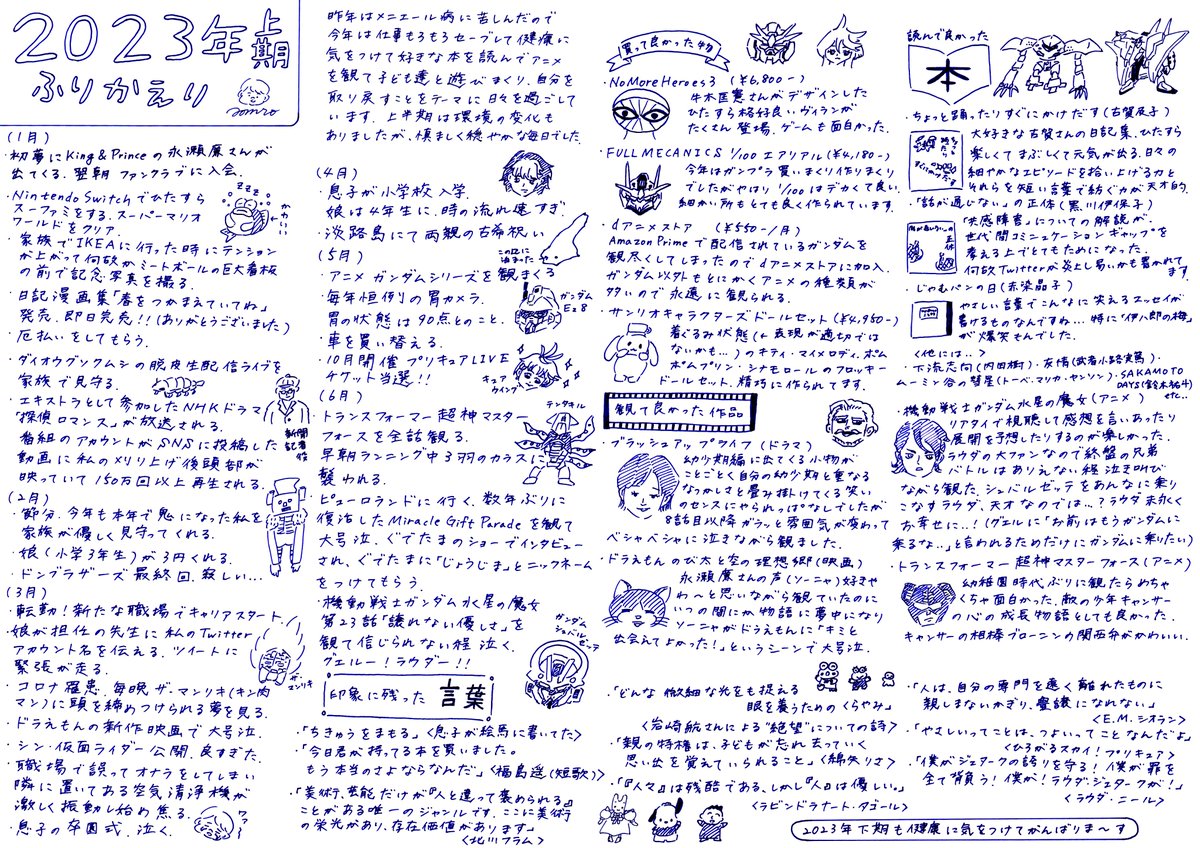 2023年上期
ふりかえり
jomizo
(1月)
・初夢にKing&Princeの永瀬廉さんが
出てくる。翌朝ファンクラブに入会。
・Nintendo Switchでひたすら
スーファミをする。スーパーマリオ
ワールドをクリア。
zzz
かわいい
・家族でIKEAに行った時にテンション
が上がって何故かミートボールの巨大看板
の前で記念写真を撮る。
・日記漫画集「春をつかまえていてね」
発売。即日完売!!(ありがとうございました)
・厄払いをしてもらう。
・ダイオウグソクムシの脱皮生配信ライブを
家族で見守る。
・エキストラとして参加したNHKドラマ
"探偵ロマンス"が放送される。
番組のアカウントがSNSに投稿した
動画に私のメリリ上げ後頭部が
映っていて150万回以上再生される。
新聞記者役
(2月)
・節分。今年も本年で鬼になった私を
家族が優しく見守ってくれる。
・娘(小学3年生)が3円くれる。
・ドンブラザーズ最終回。寂しい…
(3月)
・転勤!新たな職場でキャリアスタート。
・娘が担任の先生に私のTwitter
アカウント名を伝える。ツイートに
緊張が走る。
・コロナ罹患。毎晩ザ・マンリキ(キン肉
マン)に頭を締めつけられる夢を見る。
ザ・マンリキ
・ドラえもんの新作映画で大号泣。
・シン・仮面ライダー公開。良すぎた。
・職場で誤ってオナラをしてしまい
隣に置いてある空気清浄機が
激しく振動し始め焦る。
・息子の卒園式。泣く。
ワァ…
昨年はメニエール病に苦しんだので
今年は仕事もろもろセーブして健康に
気をつけて好きな本を読んでアニメ
を観て子ども達と遊びまくり、自分を
取り戻すことをテーマに日々を過ごして
います。上半期は環境の変化も
ありましたが、慎ましく穏やかな毎日でした。
(4月)
・息子が小学校入学。
娘は4年生に。時の流れ速すぎ。
・淡路島にて両親の古希祝い
この辺に泊まった
(5月)
・アニメガンダムシリーズを観まくる
・毎年恒例の胃カメラ。
胃の状態は90点とのこと。
ガンダムEz8
・車を買い替える。
・10月開催プリキュアLIVE
チケット当選!!
キュアウイング
(6月)
・トランスフォーマー超神マスター
フォースを全話観る。
ランダキル
・早朝ランニング中3羽のカラスに
襲われる。
・ピューロランドに行く。数年ぶりに
復活したMiracle Gift Paradeを観て
大号泣。ぐでたまのショーでインタビュー
され、ぐでたまに「じょうじま」とニックネーム
をつけてもらう
・機動戦士ガンダム水星の魔女
第23話「譲れない優しさ」を
観て信じられない程泣く。
グエルー!ラウダー!!
ガンダムシュバルゼッテ
印象に残った言葉
・「ちきゅうをまもる」<息子が絵馬に書いてた>
・「今日君が持ってる本を買いました。
もう本当のさよならなんだ」<福島遥(短歌)>
・「美術、芸能だけが『人と違って褒められる』
ことがある唯一のジャンルです。ここに美術
の栄光があり、存在価値があります」
<北川フラム>
買って良かった物
・NoMoreHeroes3 (¥6,800-)
牛木匡憲さんがデザインした
ひたすら格好良いヴィランが
たくさん登場。ゲームも面白かった。
・FULLMECANICS 1/100 エアリアル(¥4,180-)
今年はガンプラ買いまくり作りまくり
でしたがやはり1/100はデカくて良い。
細かい所もとても良く作られています。
・dアニメストア (¥550-/月)
Amazon Primeで配信されているガンダムを
観尽くしてしまったのでdアニメストアに加入。
ガンダム以外もとにかくアニメの種類が
多いので永遠に観られる。
・サンリオキャラクターズドールセット(¥4,950-)
着ぐるみ状態(←表現が適切では
ないかも…)のキティ・マイメロディ、ポム
ポムプリン・シナモロールのフロッキー
ドールセット。精巧に作られてます。
観て良かった作品
・ブラッシュアップライフ(ドラマ)
幼少期編に出てくる小物が
ことごとく自分の幼少期と重なる
なつかしさと畳み掛けてくる笑い
のセンスにやられっぱなしでしたが
8話目以降ガラッと雰囲気が変わって
ベシャベシャに泣きながら観ました。
・ドラえもん のび太と空の理想郷(映画)
永瀬廉さんの声(ソーニャ)好きや
わ〜と思いながら観ていたのに
いつの間にか物語に夢中になり
ソーニャがドラえもんに「キミと
出会えてよかった!」というシーンで大号泣。
・「どんな微細な光をも捉える
眼を養うための くらやみ」
<岩崎航さんによる"絶望"についての詩>
・「親の特権は、子どもが忘れ去っていく
思い出を覚えていられること」<綿矢りさ>
・「『人々』は残酷である、しかし『人』は優しい。」
<ラビンドラナート・タゴール>
読んで良かった
本
・ちょっと踊ったりすぐにかけだす(古賀及子)
大好きな古賀さんの日記集。ひたすら
楽しくてまぶしくて元気が出る。日々の
細やかなエピソードを拾い上げる力と
それらを短い言葉で紡ぐ力が天才的。
・「話が通じない」の正体(黒川伊保子)
「共感障害」についての解説が、
世代間コミュニケーションギャップを
考える上でとてもためになった。
何故Twitterが炎上し易いかも書かれて
ます
・じゃむパンの日(赤染晶子)
やさしい言葉でこんなに笑えるエッセイが
書けるものなんですね…特に「伊八郎の梅」
が爆笑もんでした。
<他には…>
・下流志向(内田樹)・友情(武者小路実篤)・
ムーミン谷の彗星(トーベ・マリカ・ヤンソン)・SAKAMOTO
DAYS(鈴木祐斗)
etc…
・機動戦士ガンダム水星の魔女(アニメ)
リアタイで視聴して感想を言いあったり
展開を予想したりするのが楽しかった。
ラウダの大ファンなので終盤の兄弟
バトルはありえない程泣き叫び
ながら観た。シュバルゼッテをあんなに乗り
こなすラウダ、天才なのでは…?ラウダ末永く
お幸せに…!(グエルに「お前はもうガンダムに
乗るな…」と言われるためだけにガンダムに乗りたい)
・トランスフォーマー超神マスターフォース(アニメ)
幼稚園時代ぶりに観たらめちゃ
くちゃ面白かった。敵の少年キャンサー
の心の成長物語としても良かった。
キャンサーの相棒ブローニンの関西弁がかわいい。
・「人は、自分の専門を遠く離れたものに
親しまないかぎり、豊饒になれない」
<E.M.シオラン>
・「やさしいってことは、つよいってことなんだよ」
<ひろがるスカイ!プリキュア>
・「僕がジェタークの誇りを守る!僕が罪を
全て背負う!僕が!ラウダ・ジェタークが!」
<ラウダ・ニール>
2023年下期も健康に気をつけてがんばりま〜す